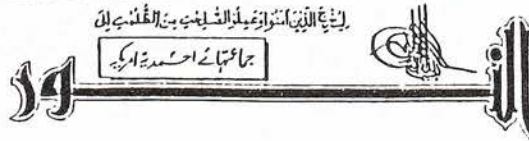 لِيُخْرِجَ الَّذِينَ آمَنُوا وَعَمِلُوا الصّٰلِحٰتِ مِنَ الظُّلُمٰتِ اِلَى
جماعتہائے احمدیہ امریکہ
النور